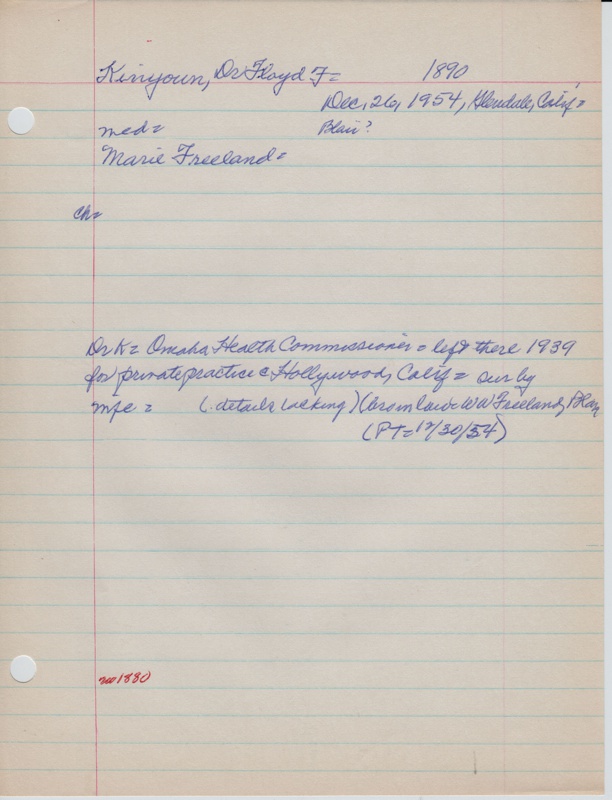 Kinyoun, Dr Floyd F= 1890
Dec, 26, 1954, Glendale, Calif=
med= Blair?
Marie Freeland=
ch=
Dr K= Omaha Health Commissioner= left there 1939
for private practice @ Hollywood, Calif= sur by
mpe= (details lacking) (brsinlaw= WW Freeland, Blair
(PT=12/30/54)
no 1880